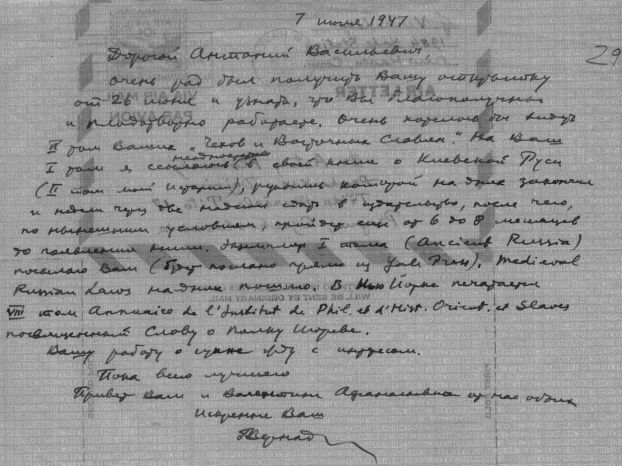 7 июля 1947
29
Дорогой Антоний Васильевич,
Очень рад был получить Вашу открытку
от 26 июня и узнать, что Вы благополучны
и плодотворно работаете. Очень хотелось бы видеть
II том Ваших "Чехов и Восточных Славян". На Ваш
I том я неоднократно ссылаюсь в своей книге о Киевской Руси
(II том моей истории), рукопись которой на днях закончил
и надеюсь через две недели сдать в издательство, после чего,
по нынешним условиям, пройдет еще от 6 до 8 месяцев
до появления книги. Экземпляр I тома (Ancient Russia)
посылаю Вам (будет послано прямо из Yale Press). Medieval
Russian Laws на днях пошлю. В Нью Йорке печатается
VIII том Annuaire de l'Institut de Phil. et d'Hist. Orient. et Slaves
посвященный Слову о Полку Игореве.
Вашу работу о жду с интересом.
Пока всего лучшего
Привет Вам и Валентине Афанасьевне от нас обоих
Искренне Ваш
ГВернад
AIR LETTER
VIA AIR MAIL
PAR AVION
WILL BE SENT BY ORDINARY MAIL